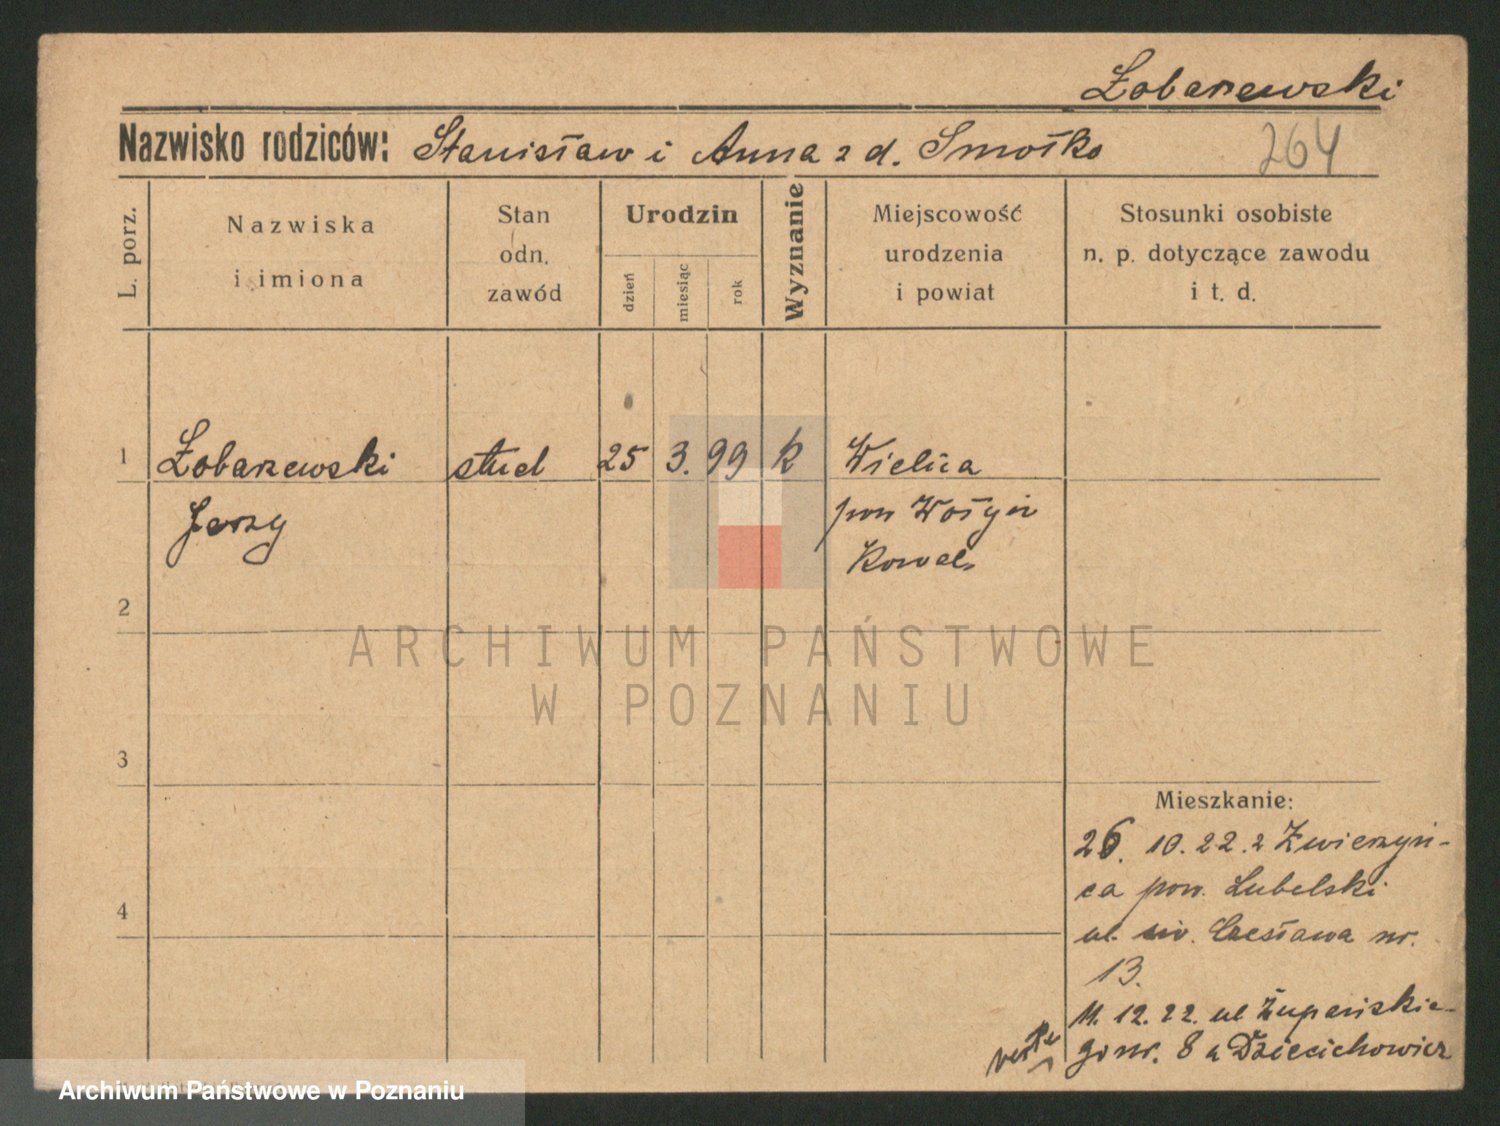 Łobarzewski
Nazwisko rodziców: Stanisław i Anna z d. Smołko
264
L. porz.
Nazwiska
i imiona
Stan
odn.
zawód
Urodzin
dzień
miesiąc
rok
Wyznanie
Miejscowość
urodzenia
i powiat
Stosunki osobiste
n. p. dotyczące zawodu
i t. d.
1 Łobarzewski stud 25 3. 99 k
Jerzy
pow Wołyń
Kowel.
2
3
4
Mieszkanie:
26. 10. 22. z Zwierzyń-
ca pow. Lubelski
ul. św. Czesława nr.
13.
11. 12. 22. ul Żupańskie-
go nr. 8 u Dziecichowicz
verte
ARCHIWUM PAŃSTWOWE
W POZNANIU
Archiwum Państwowe w Poznaniu